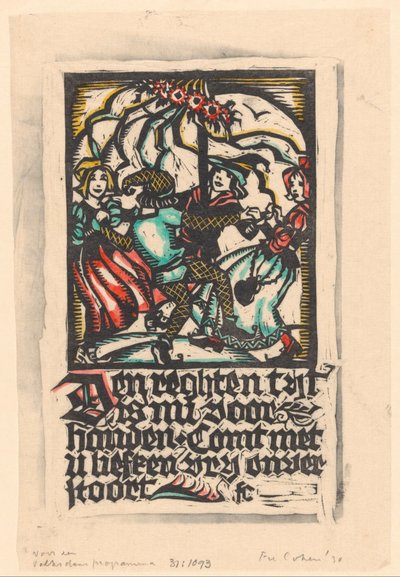 Den reghten tyt
Is nu voor
handen. Comt met
u liefken vry onver
stoort FC
Voor een
Volksdansprogramma 37:1093 Fré Cohen '30